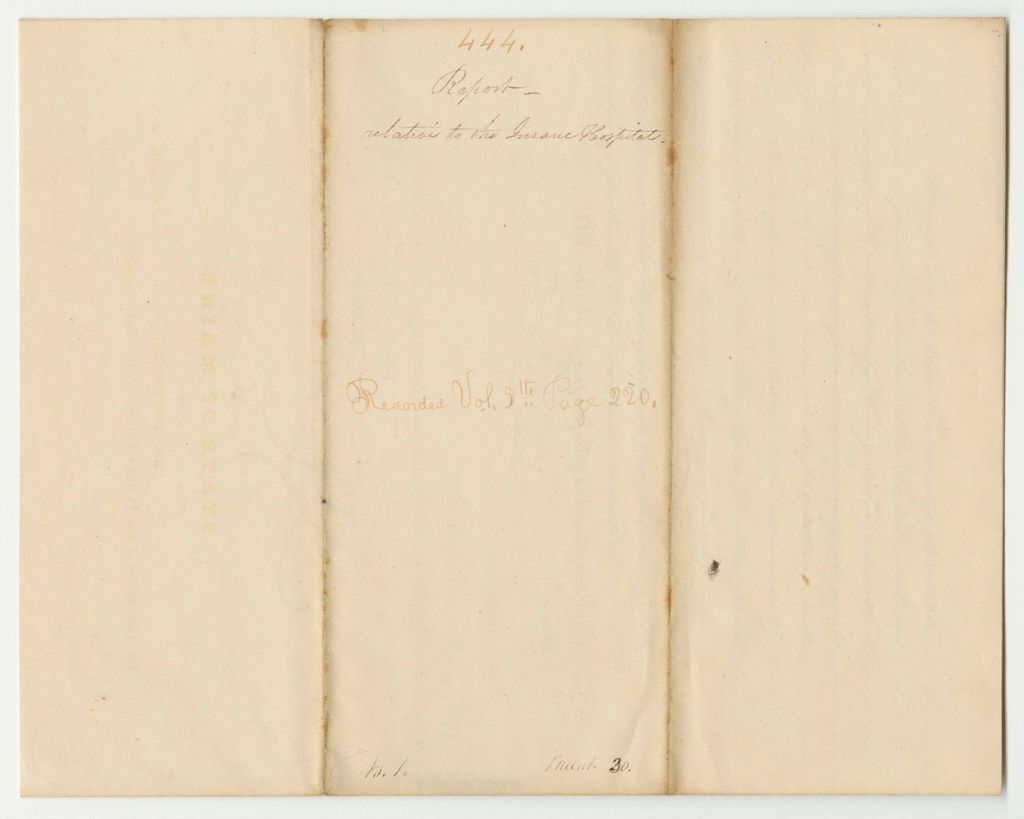 444.
Report—
relative to the Insane Hospital.
Recorded Vol. 5th. Page 220.
No. 1. March 30.
STATE OF MAINE